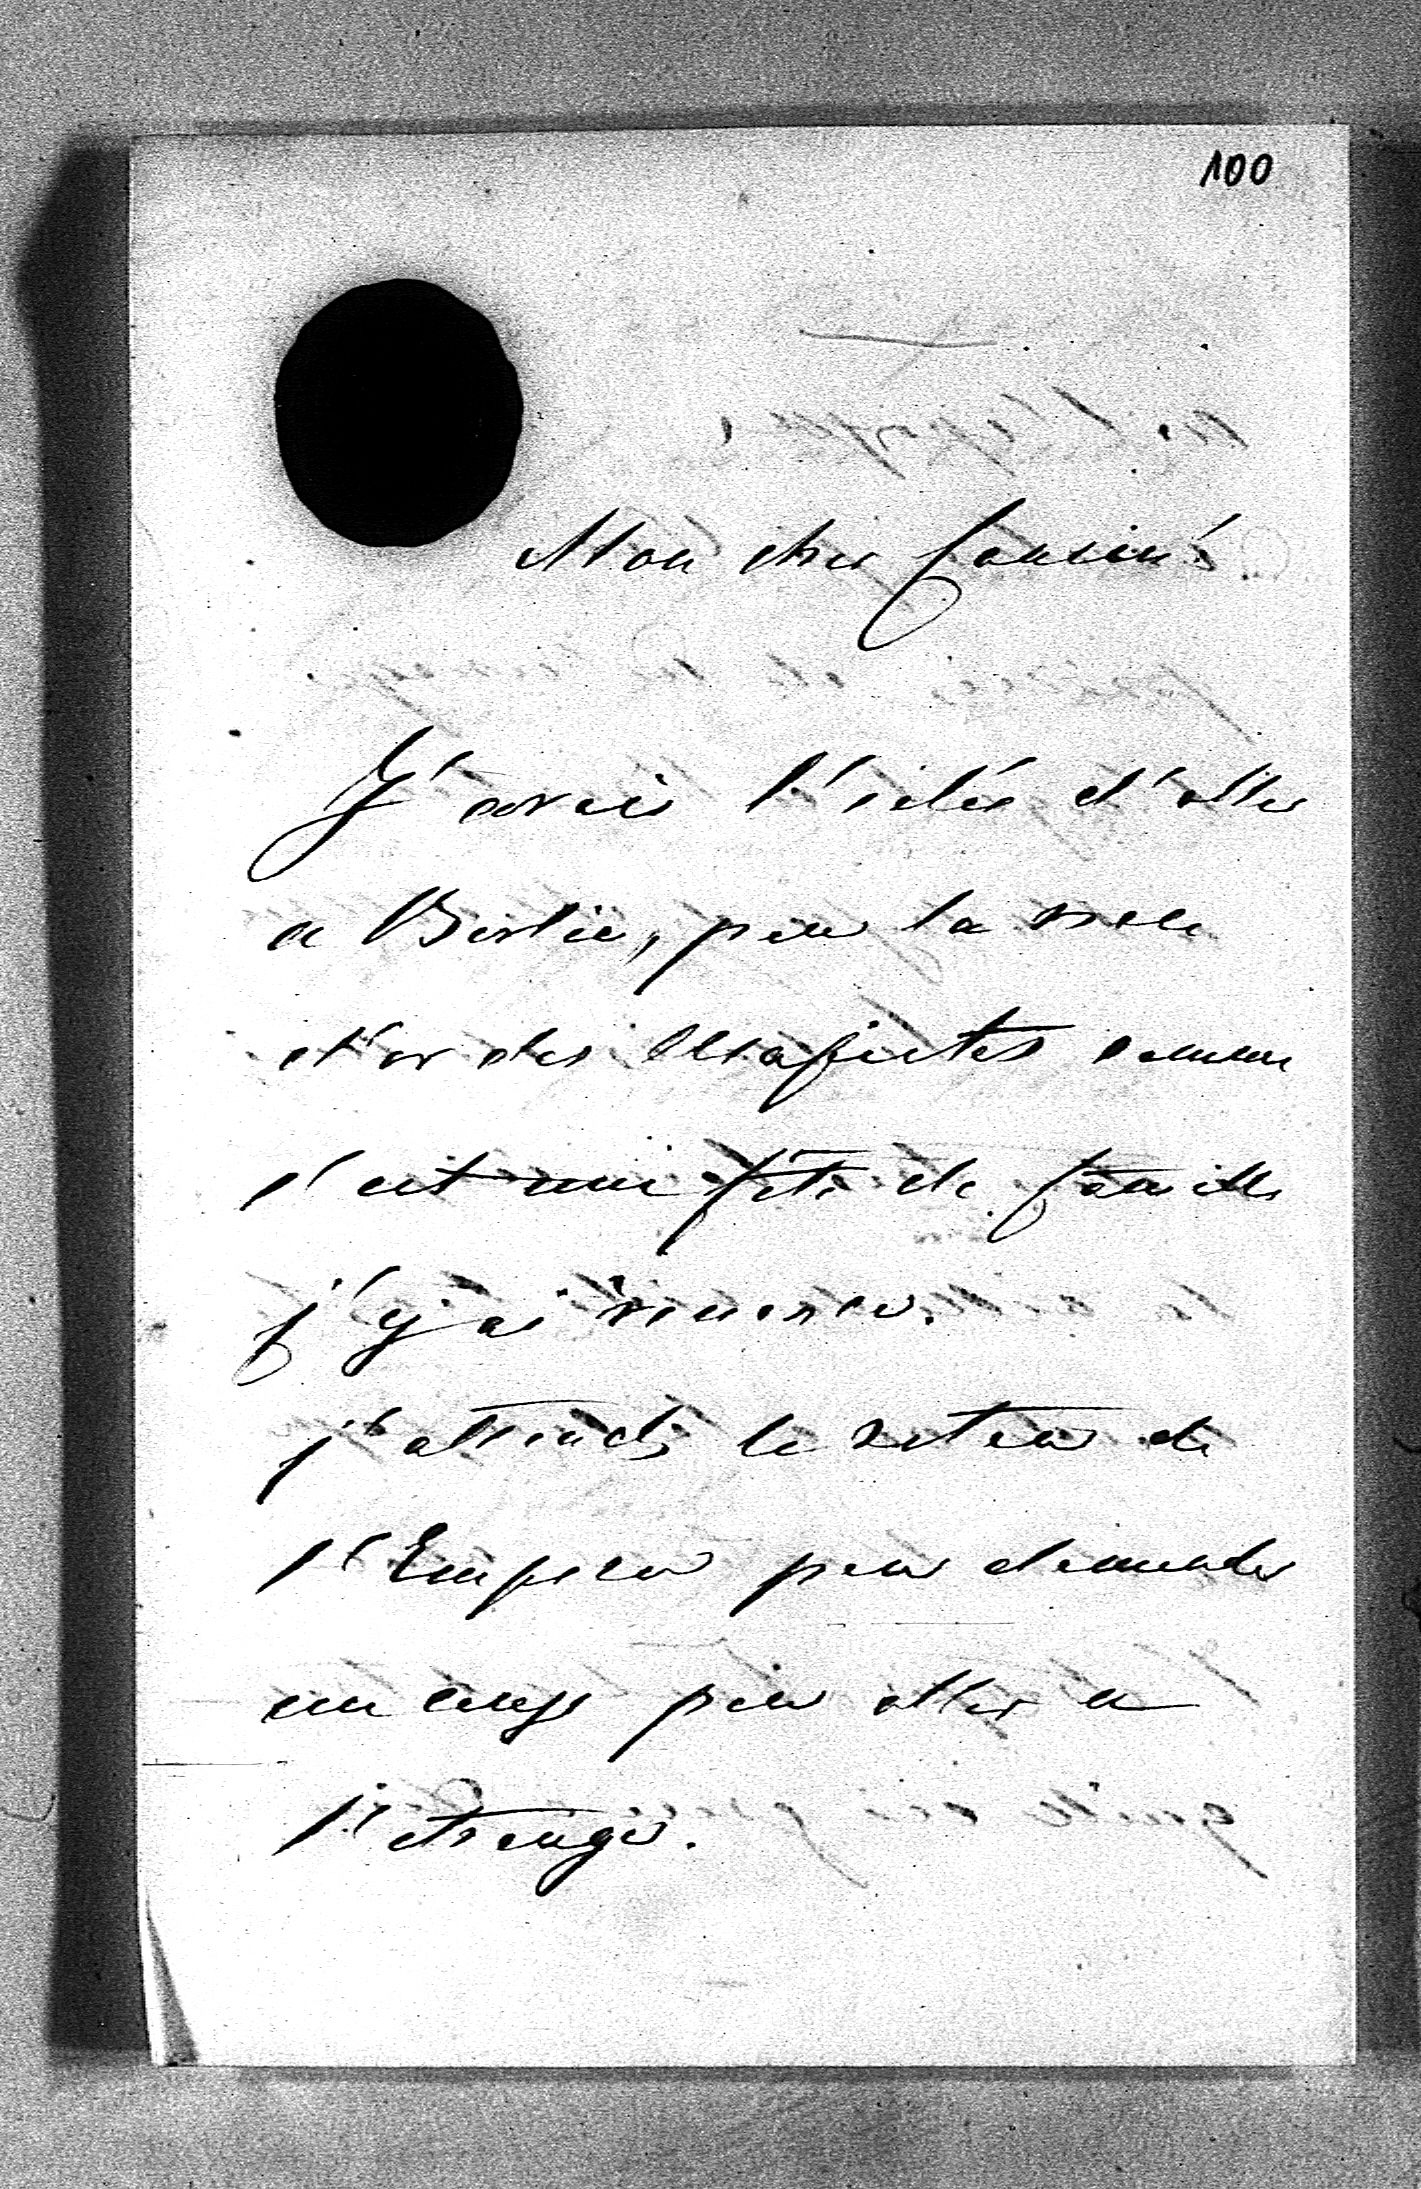 100
Mon cher Cousin!
J'avais l'idée d'aller
a Berlin, pour la noce
d'or des Majestes comme
c'est une fête de famille
j'y ai renoncé.
j'attends le retour de
l'Empereur pour demander
un congé pour aller a
l'etranger.